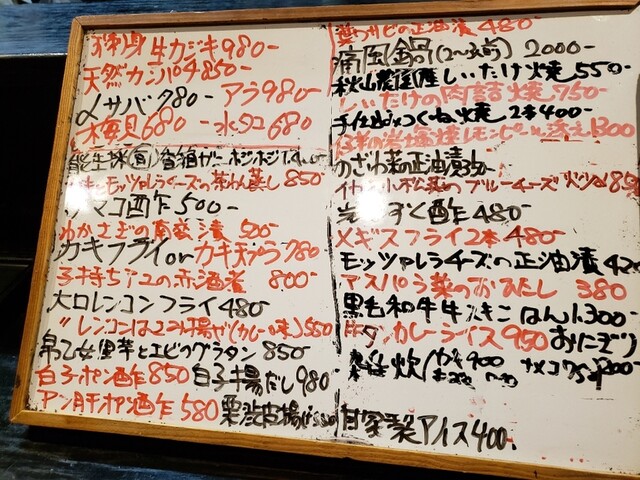 お刺身 生カジキ 980-
天然カンパチ 850-
〆サバ 780- アラ 980-
梅貝 680 水タコ 680
香箱ガニ
モッツァレラチーズの茶わん蒸し 850
ナマコ酢 500-
わかさぎの南蛮漬 500-
カキフライor カキ天ぷら 780
子持ちアユの赤酒煮 800-
大口レンコンフライ 480-
〃レンコンはさみ揚げ(カレー味) 550
早乙女里芋とエビのグラタン 850
白子ポン酢 850 白子揚だし 980-
アン肝ポン酢 580 栗渋皮揚げ
葉ワサビの正油漬 480-
痛風鍋(2〜3人前) 2000-
秋山農園産しいたけ焼 550
しいたけの肉詰焼 750-
手仕込みつくね焼 2本 400-
岩塩焼レモンピール添え 1300
のざわ菜の正油漬 350-
イカと小松菜のブルーチーズ 850
岩もずく酢 480-
メギスフライ 2本 480-
モッツァレラチーズの正油漬 420
アスパラ菜のおひたし 380
黒毛和牛牛すきごはん 1.300-
カレーライス 950 おにぎり
炊 900 ナメコ
自家製アイス 400.